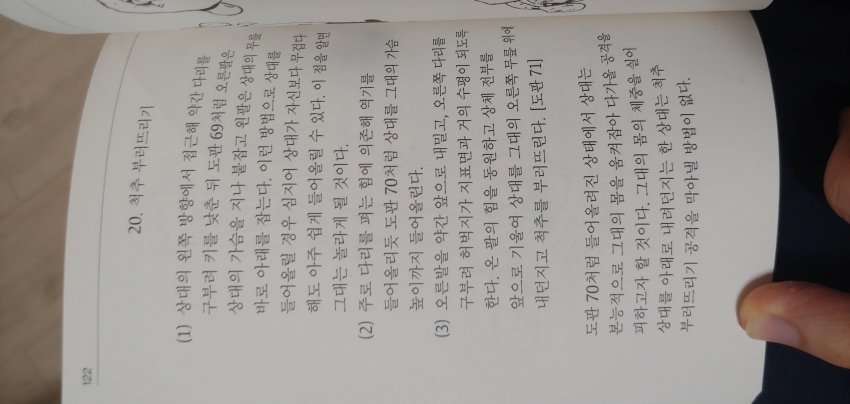 122
20. 척추 부러뜨리기
(1) 상대의 왼쪽 방향에서 접근해 약간 다리를
구부려 키를 낮춘 뒤 도판 69처럼 오른팔은
상대의 가슴을 지나 붙잡고 왼팔은 상대의 무릎
바로 아래를 잡는다. 이런 방법으로 상대를
들어올릴 경우 심지어 상대가 자신보다 무겁다
해도 아주 쉽게 들어올릴 수 있다. 이 점을 알면
그대는 놀라게 될 것이다.
(2) 주로 다리를 펴는 힘에 의존해 역기를
들어올리듯 도판 70처럼 상대를 그대의 가슴
높이까지 들어올린다.
(3) 오른발을 약간 앞으로 내밀고, 오른쪽 다리를
구부려 허벅지가 지표면과 거의 수평이 되도록
한다. 온 팔의 힘을 동원하고 상체 전부를
앞으로 기울여 상대를 그대의 오른쪽 무릎 위에
내던지고 척추를 부러뜨린다. [도판 71]
도판 70처럼 들어올려진 상태에서 상대는
본능적으로 그대의 몸을 움켜잡아 다가올 공격을
피하고자 할 것이다. 그대의 몸의 체중을 실어
상대를 아래로 내려던지는 한 상대는 척추
부러뜨리기 공격을 막아낼 방법이 없다.